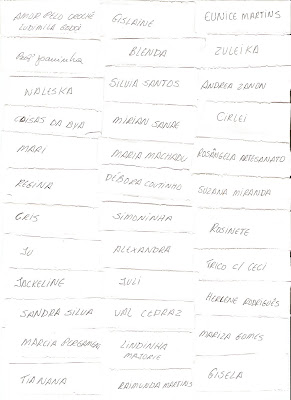 AMOR PELO CROCHÊ
LUDIMILA
Profª Joaninha
WALESKA
COISAS DA BYA
MARI
REGINA
CRIS
JU
JACKELINE
SANDRA SILVA
MARCIA
TIA NANA
GISLAINE
BLENDA
SILVIA SANTOS
MIRIAN SANAE
MARIA MACHADO
DÉBORA COUTINHO
SIMONINHA
ALEXANDRA
JULI
VAL CEDRAZ
LINDINHA
MAJORIE
RAIMUNDA MARTINS
EUNICE MARTINS
ZULEIKA
ANDREA ZANON
CIRLEI
ROSÂNGELA ARTESANATO
SUZANA MIRANDA
ROSINETE
TRICO C/ CECI
RODRIGUES
MARIZA GOMES
GISELA